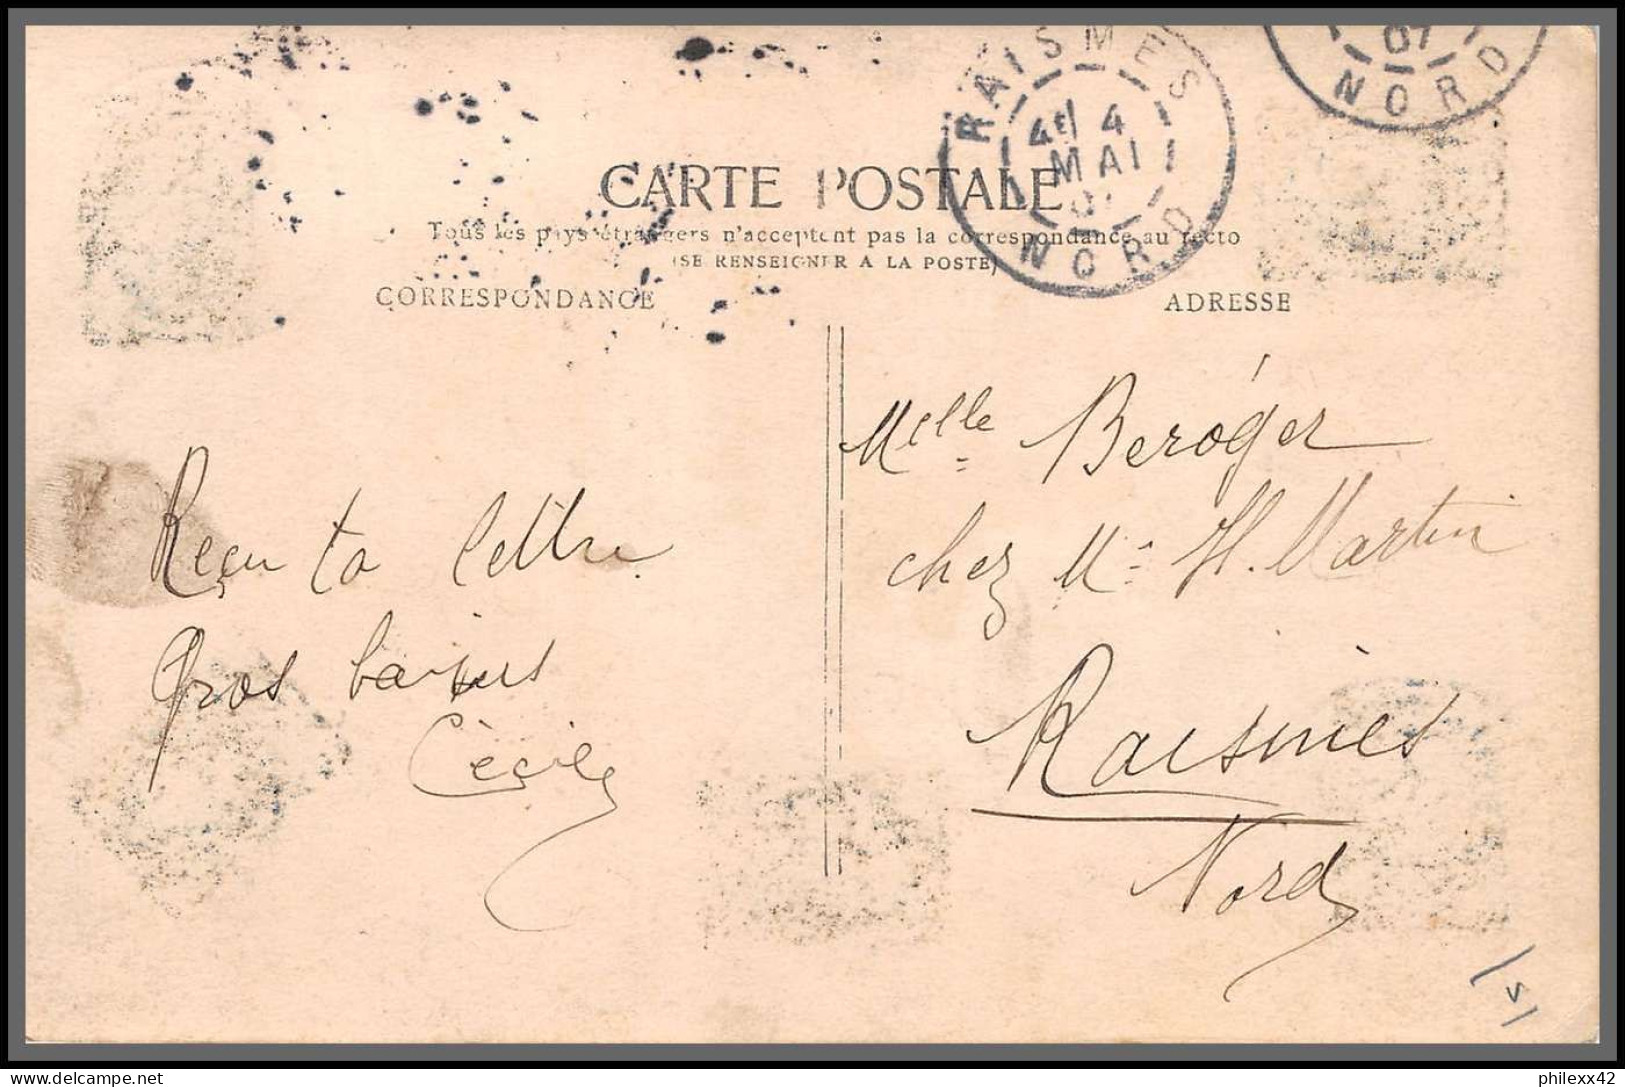 RAISMES
4E 4
MAI
07
NORD
07
NORD
CARTE POSTALE
Tous les pays étrangers n'acceptent pas la correspondance au recto
(SE RENSEIGNER A LA POSTE)
CORRESPONDANCE
ADRESSE
Reçu ta lettre
Gros baisers
Cècile
Melle Beróger
chez Mr H. Martin
Raismes
Nord
www.delcampe.net
philexx42